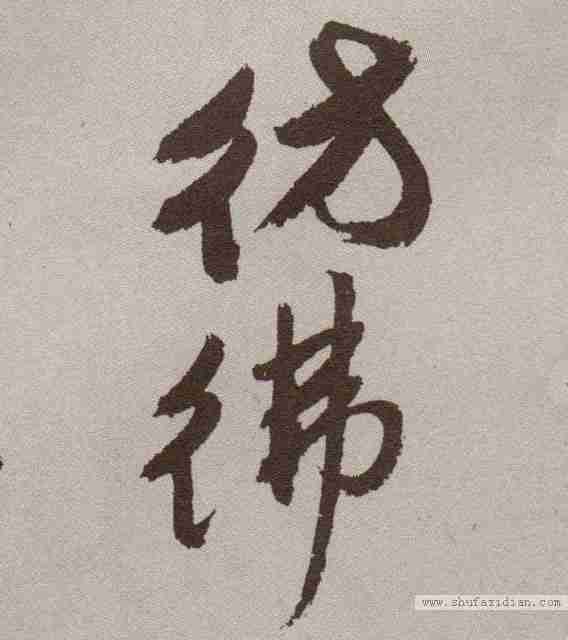 彷
彿
www.shufazidian.com